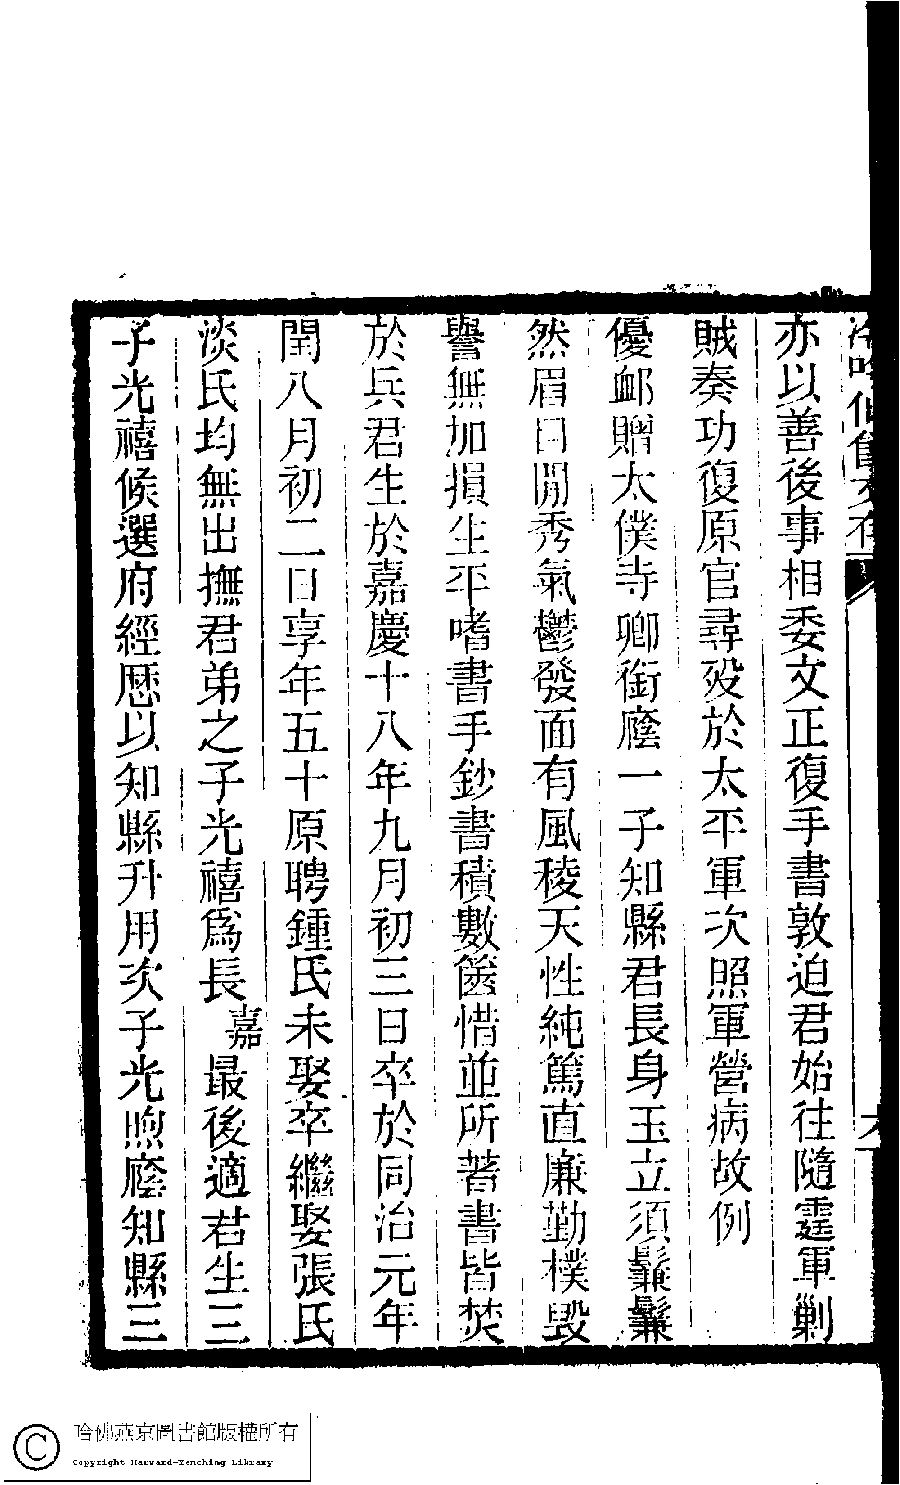 亦以善後事相委文正復手書敦迫君始往隨霆軍剿
賊奏功復原官尋歿於太平軍次照軍營病故例
優䘏贈太僕寺卿銜廕一子知縣君長身玉立須鬑鬑
然眉目閒秀氣鬱發面有風稜天性純篤直廉勤樸毀
譽無加損生平嗜書手鈔書積數篋惜並所著書皆焚
於兵君生於嘉慶十八年九月初三日卒於同治元年
閏八月初二日享年五十原聘鍾氏未娶卒繼娶張氏
淡氏均無出撫君弟之子光禧爲長嘉最後適君生三
子光禧候選府經歷以知縣升用次子光煦廕知縣三
哈佛燕京圖書館版權所有
Copyright Harvard-Yenching Library